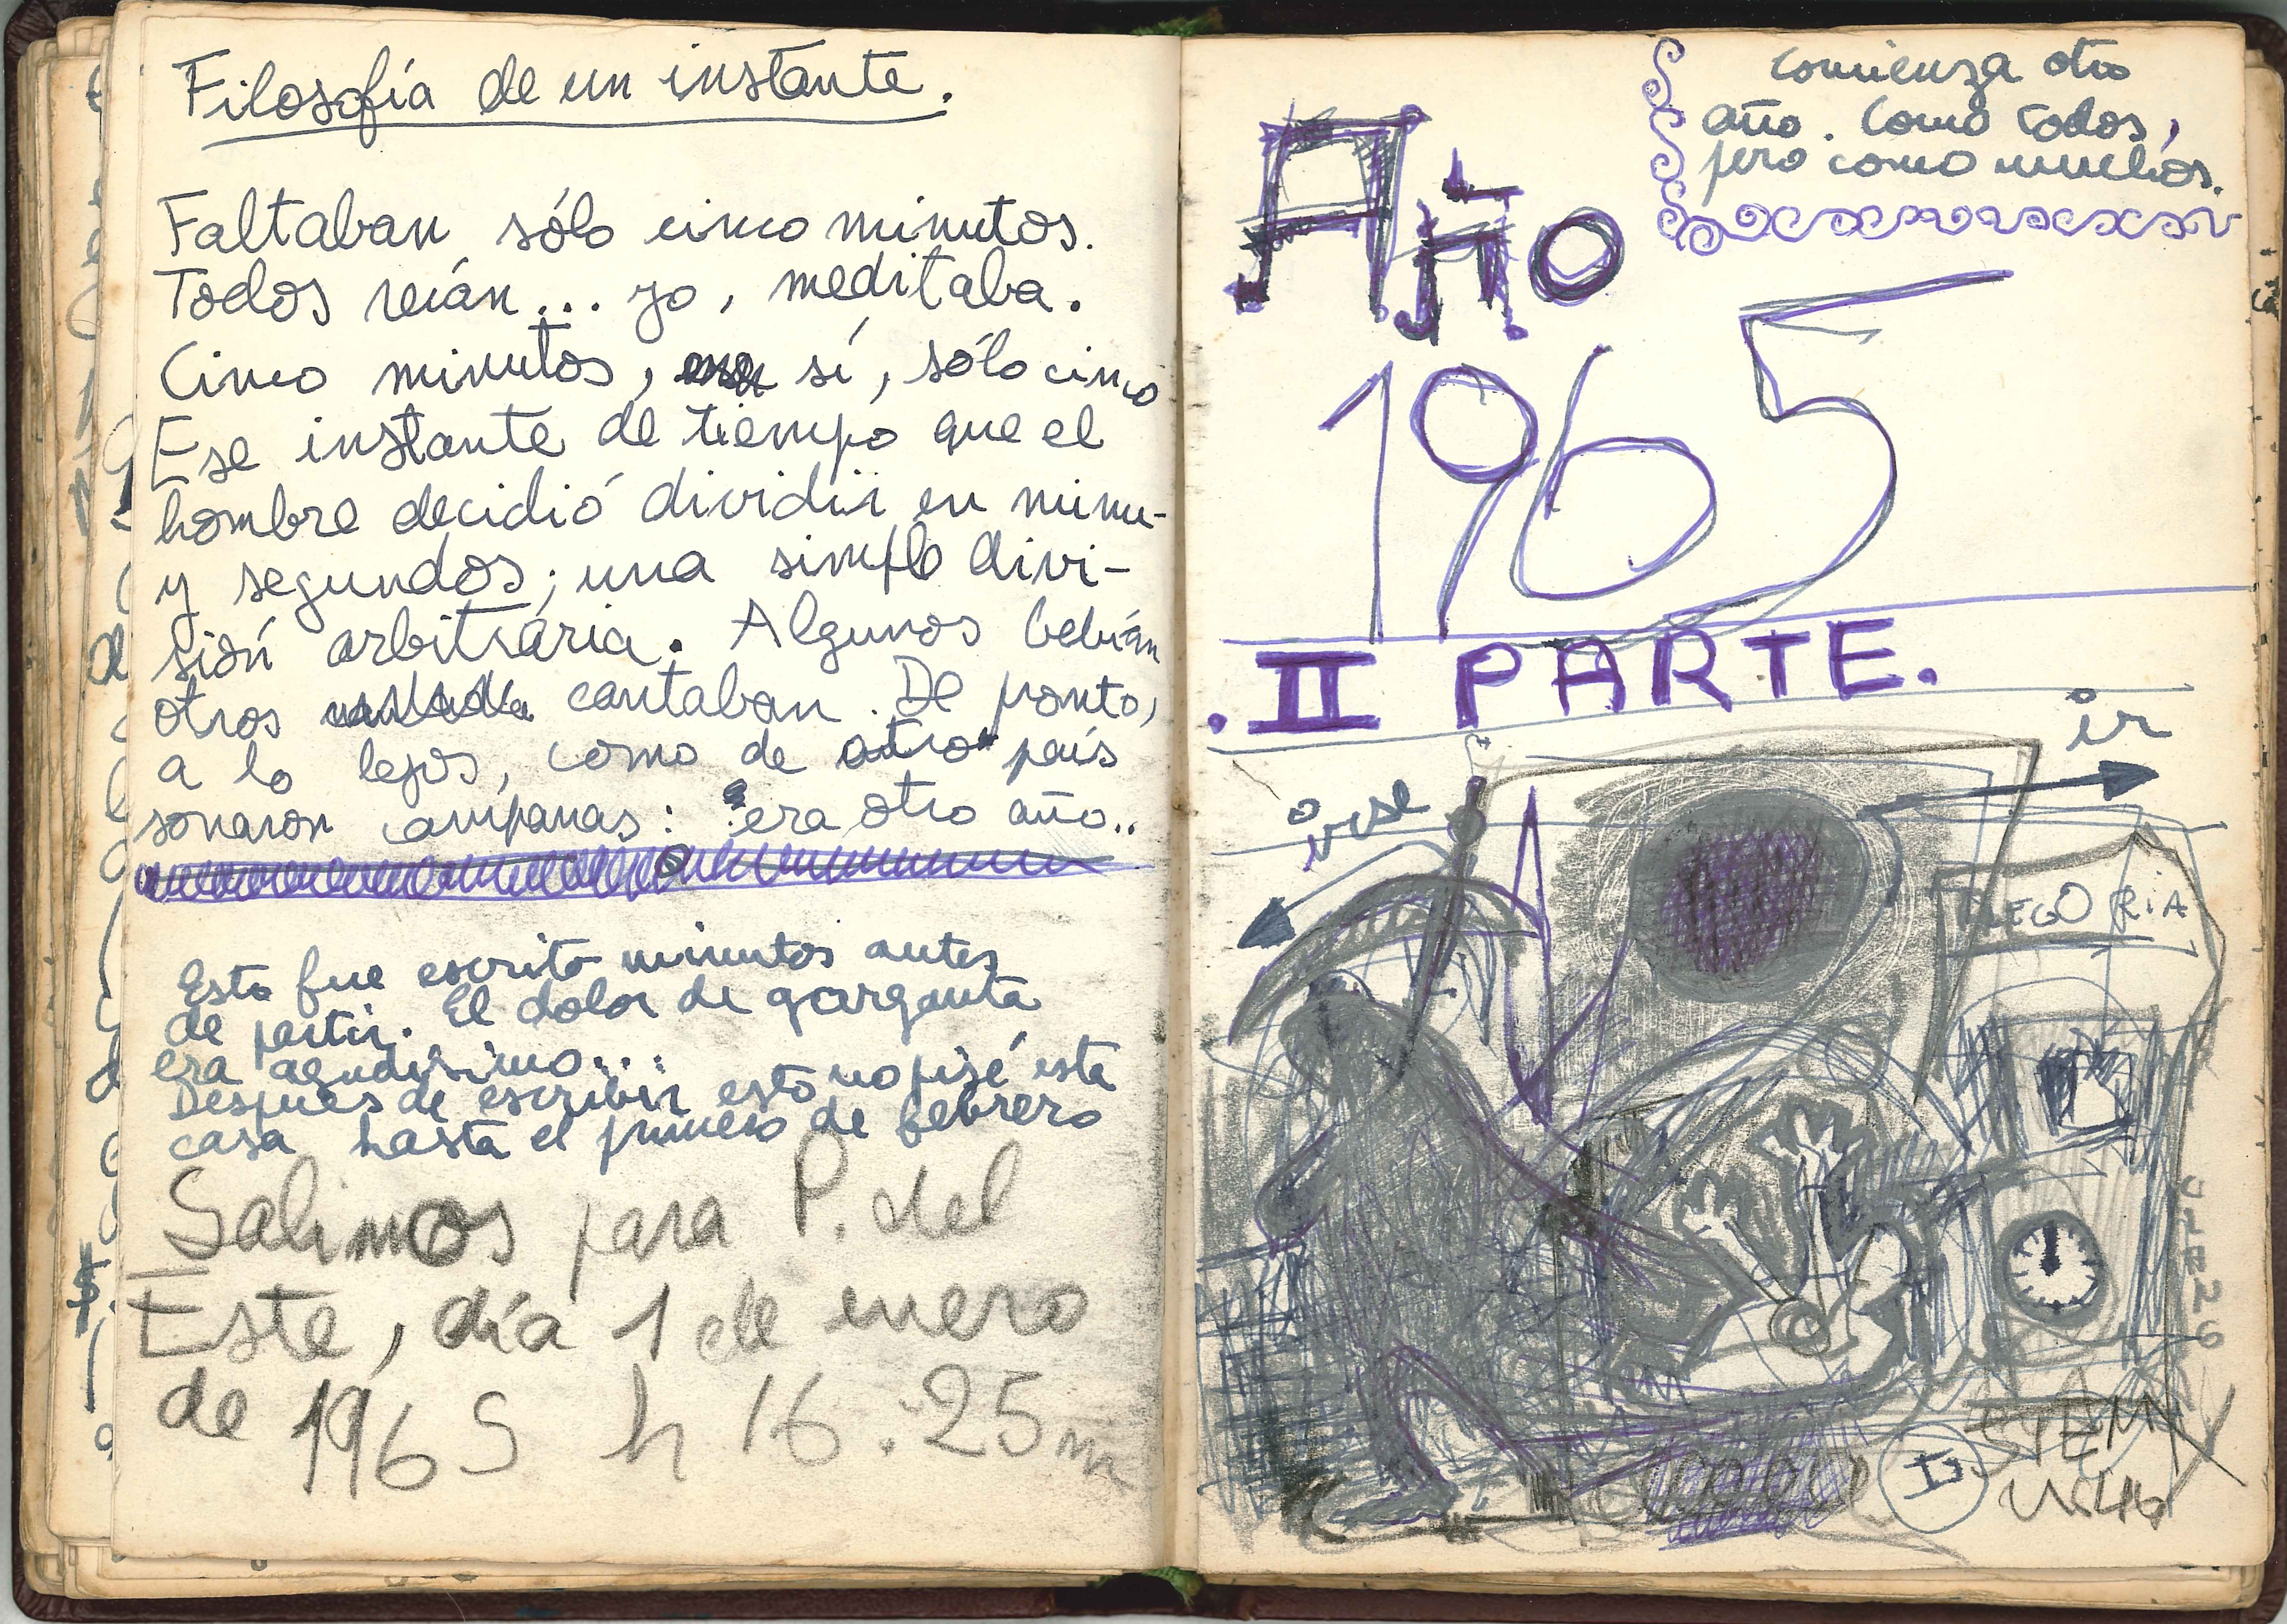 Filosofía de un instante.
Faltaban sólo cinco minutos.
Todos reían... yo, meditaba.
Cinco minutos, sí, sólo cinco
Ese instante de tiempo que el
hombre decidió dividir en minu-
y segundos; una simple divi-
sión arbitraria. Algunos bebían
otros cantaban. De pronto,
a lo lejos, como de otro país
sonaron campanas: era otro año..
Esto fue escrito minutos antes
de partir. El dolor de garganta
era agudísimo...
Después de escribir esto no pisé esta
casa hasta el primero de febrero
Salimos para P. del
Este, día 1 de enero
de 1965 h 16:25m
comienza otro
año. Como todos,
pero como muchos.
Año
1965
.II PARTE.
ir
o
irse
ALEGORIA
II